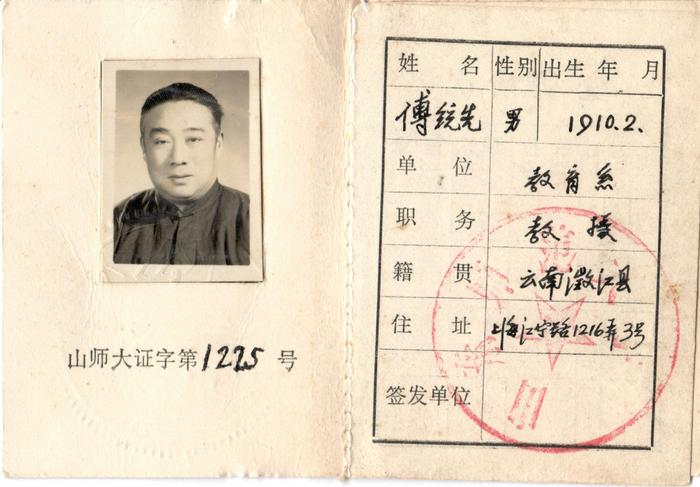 山师大证字第1225号
姓名 性别 出生年月
傅统先 男 1910.2.
单位 教育系
职务 教授
籍贯 云南澂江县
住址 上海江宁路1216弄3号
签发单位